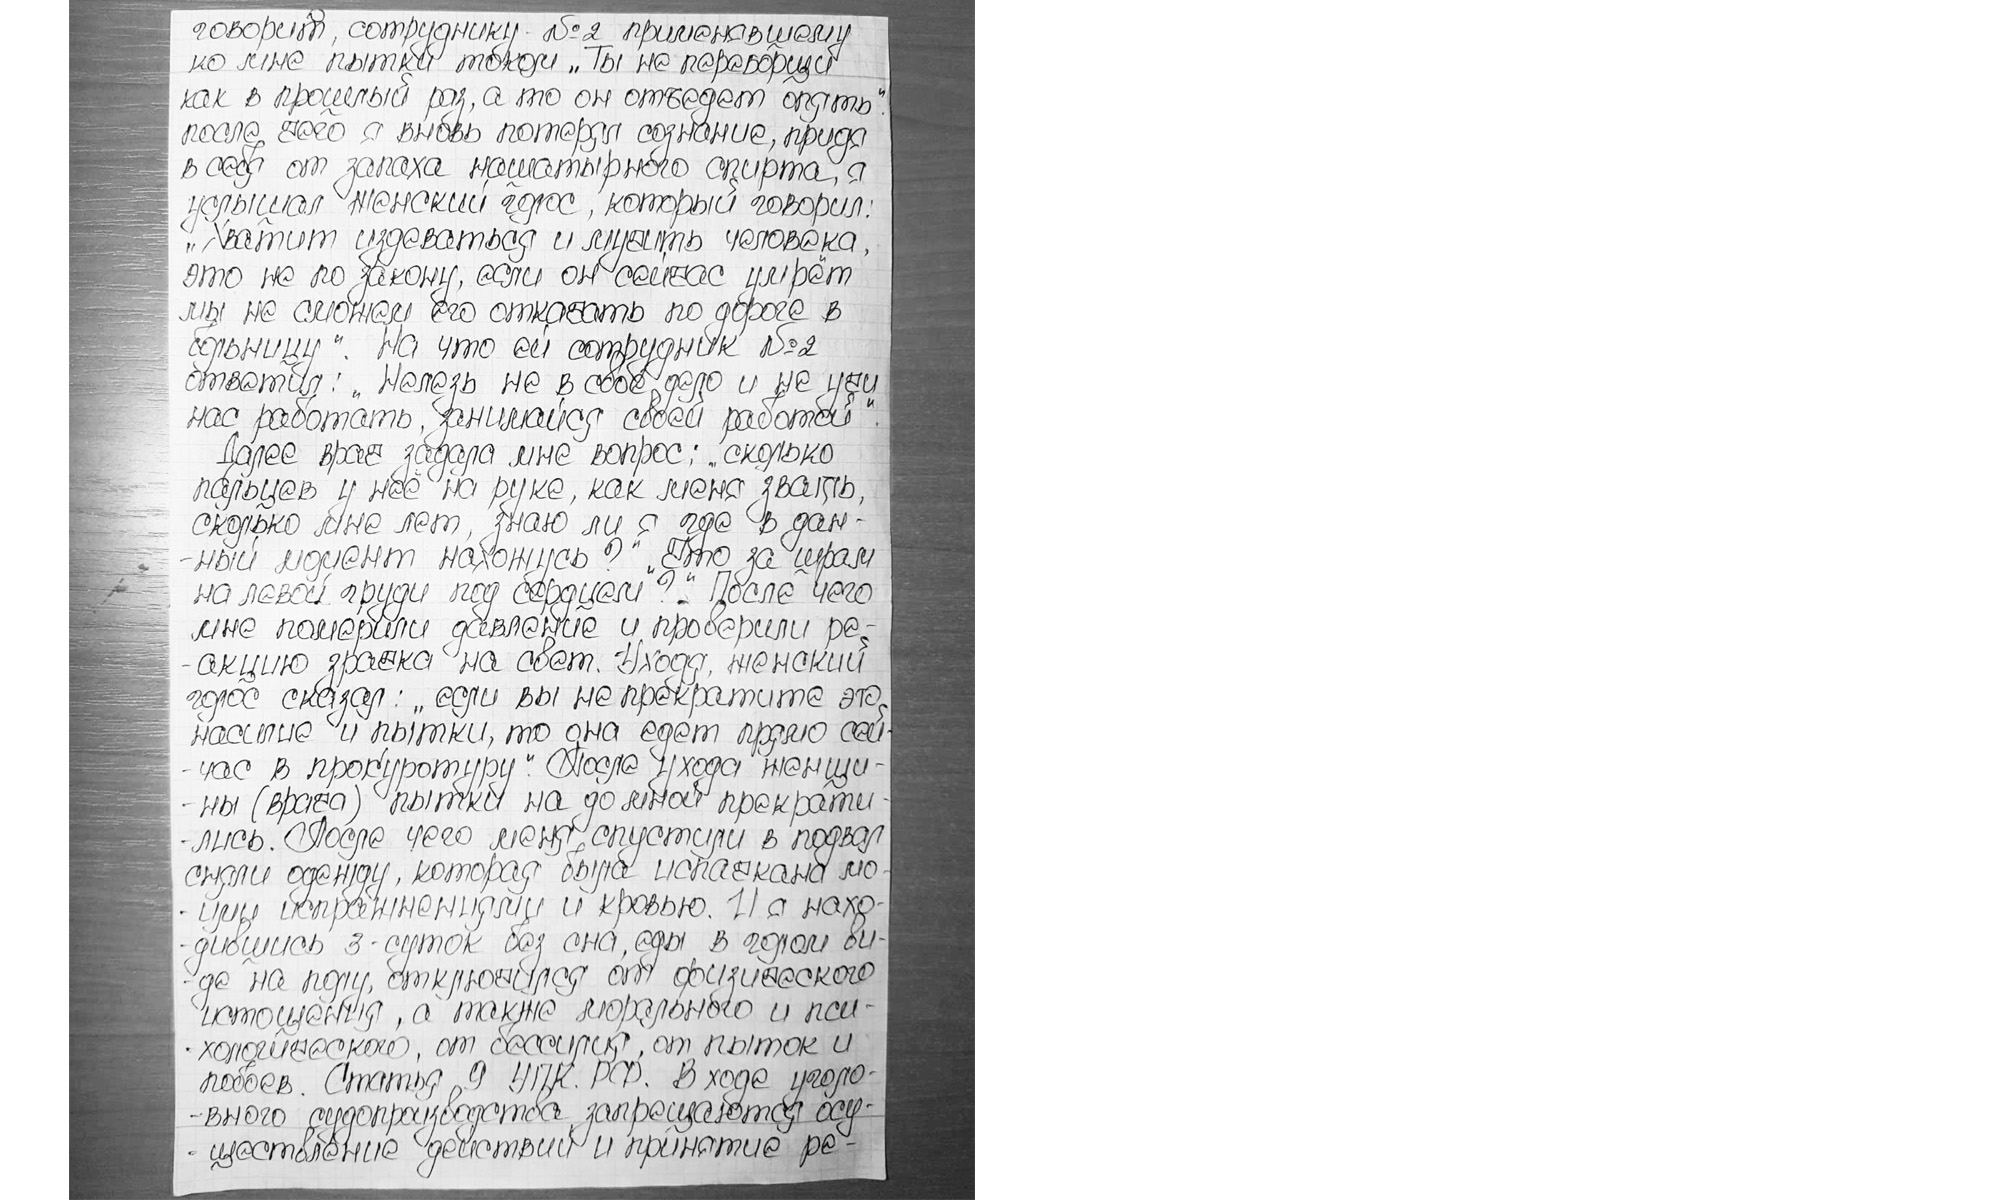 говорит, сотруднику №2 применявшему
ко мне пытки током „Ты не переборщи
как в прошлый раз, а то он отъедет опять".
после чего я вновь потерял сознание, придя
в себя от запаха нашатырного спирта, я
услышал женский голос, который говорил:
„Хватит издеваться и мучить человека,
это не по закону, если он сейчас умрёт
мы не сможем его откачать по дороге в
больницу". На что ей сотрудник №2
ответил: „Нелезь не в своё дело и не учи
нас работать, занимайся своей работой".
Далее врач задала мне вопрос: „сколько
пальцев у неё на руке, как меня звать,
сколько мне лет, знаю ли я где в дан-
-ный момент нахожусь?" „Что за шрам
на левой груди под сердцем?" После чего
мне померили давление и проверили ре-
-акцию зрачка на свет. Уходя, женский
голос сказал: „если вы не прекратите это
насилие и пытки, то она едет прямо сей-
-час в прокуротуру". После ухода женщи-
-ны (врача) пытки на до мной прекрати-
-лись. После чего меня спустили в подвал
сняли одежду, которая была испачкана мо-
-ими испражнениями и кровью. И я нахо-
-дившись 3-суток без сна, еды в голом ви-
-де на полу, отключился от физического
истощения, а также морального и пси-
-хологического, от бессилия, от пыток и
побоев. Статья 9 УПК. РФ. В ходе уголо-
-вного судопроизводства запрещаются осу-
-ществление действий и принятие ре-